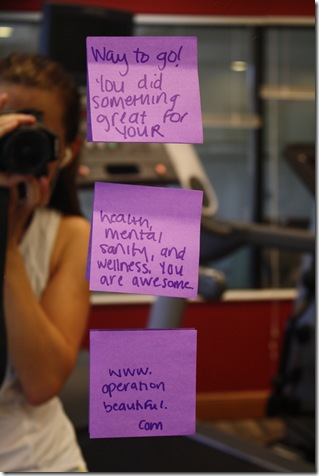 Way to go!
You did
something
great for
YOUR
health,
mental
sanity, and
wellness. You
are awesome
www.
operation
beautiful.
com